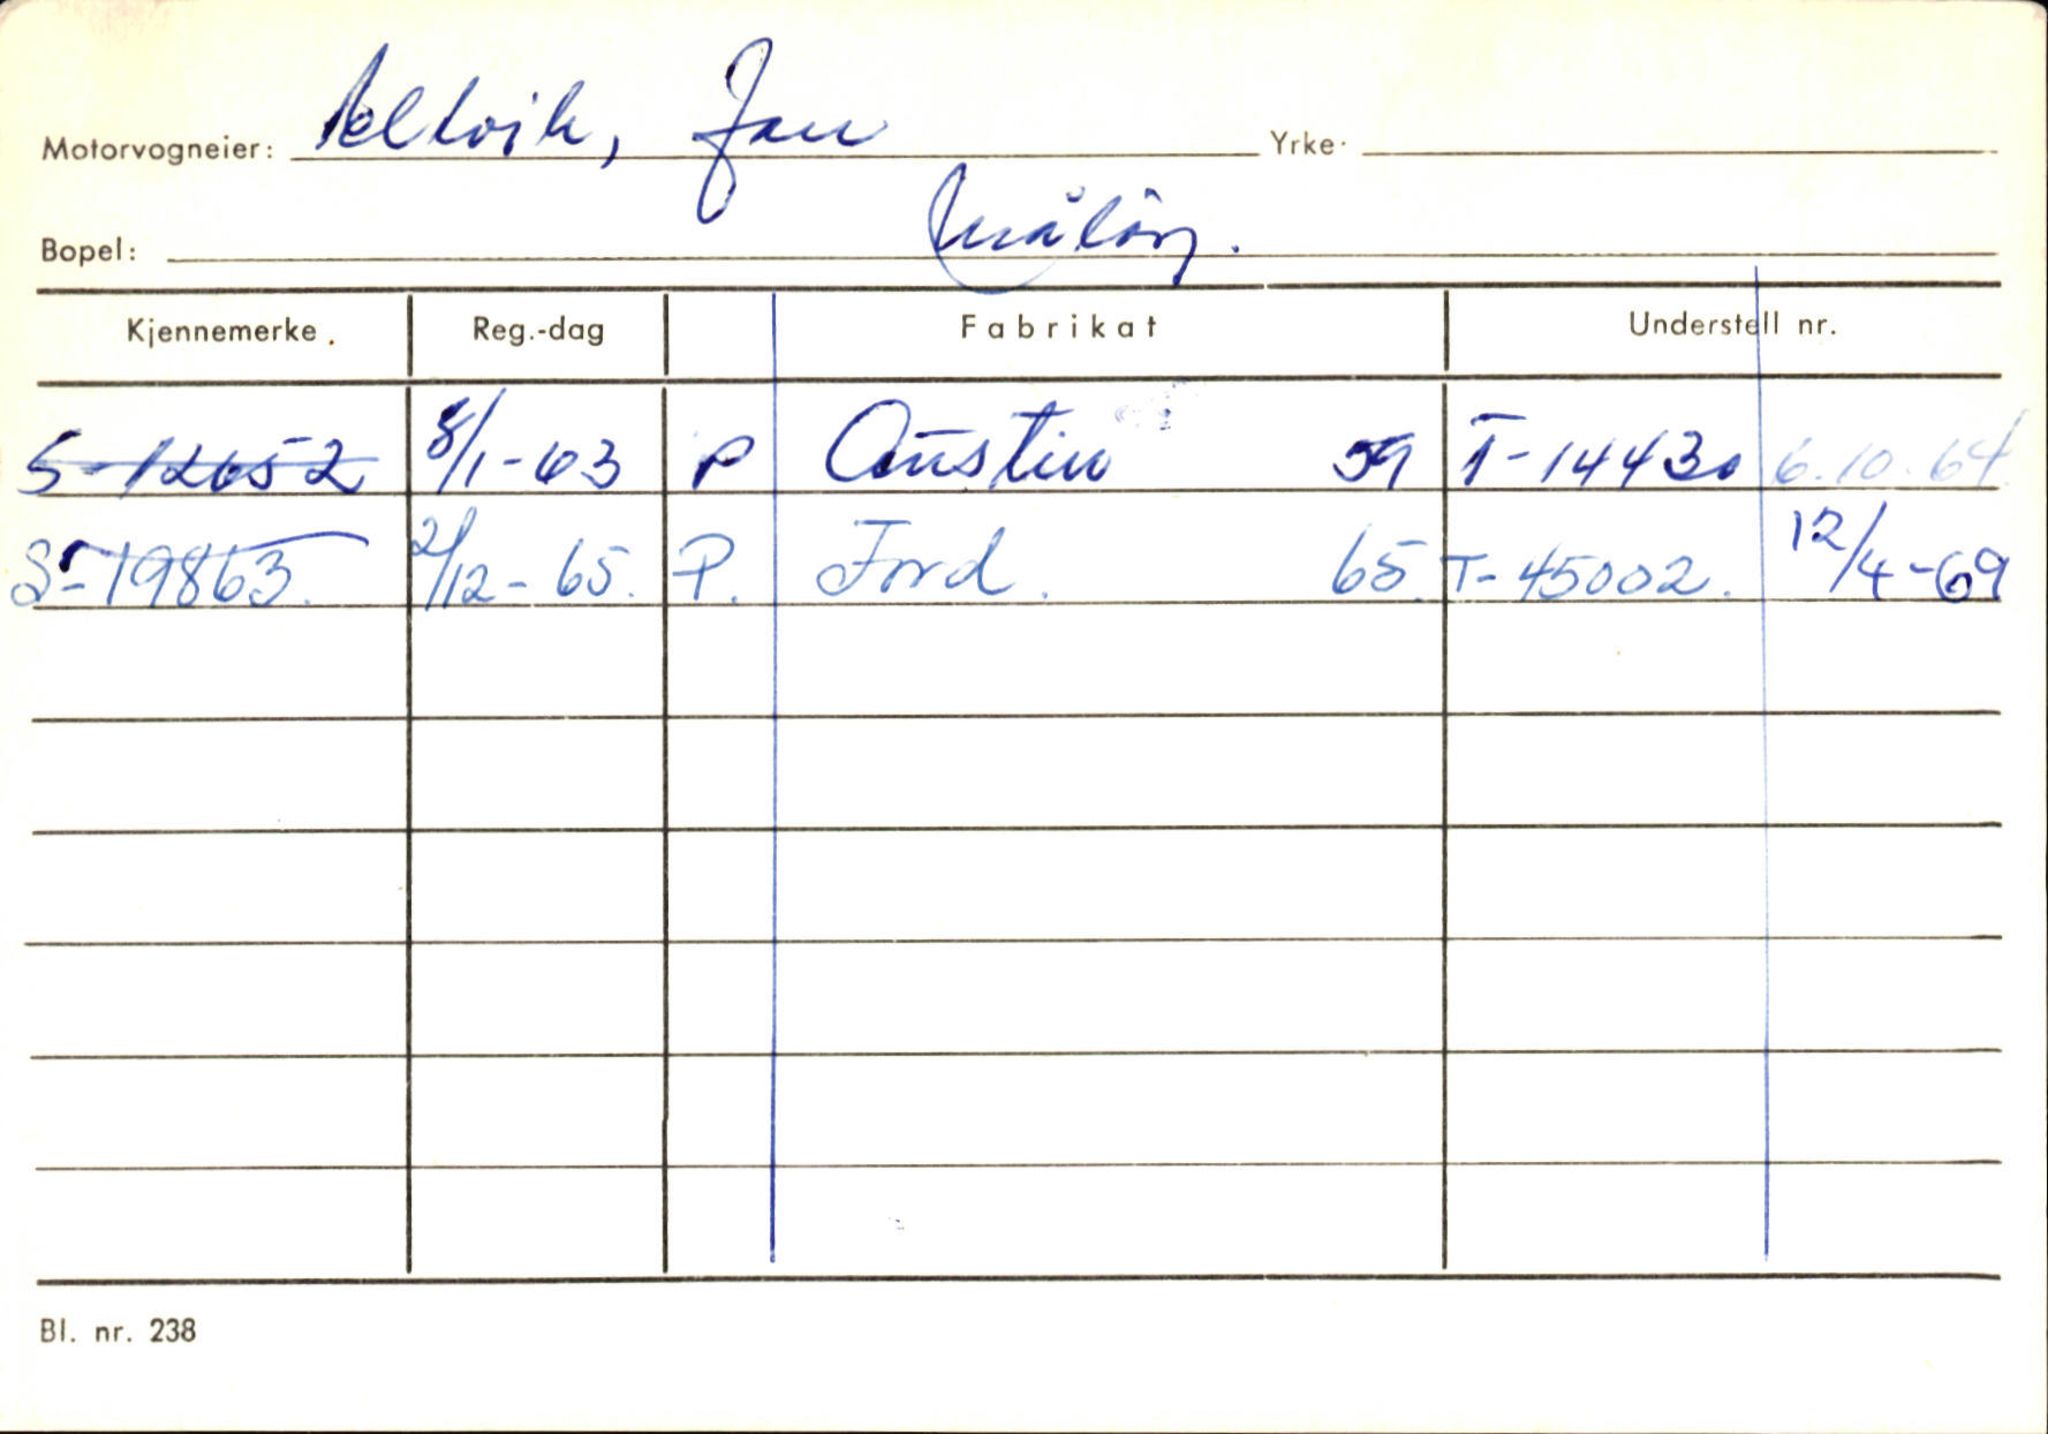 Motorvogneier: Seltvik, Jan Yrke.
Bopel: Måløy.
Kjennemerke. Reg.-dag Fabrikat Understell nr.
S-12652 8/1-63 P Austin 59 T-14430 6.10.64
S-19863. 2/12-65. P. Ford. 65. T-45002. 12/4-69
Bl. nr. 238